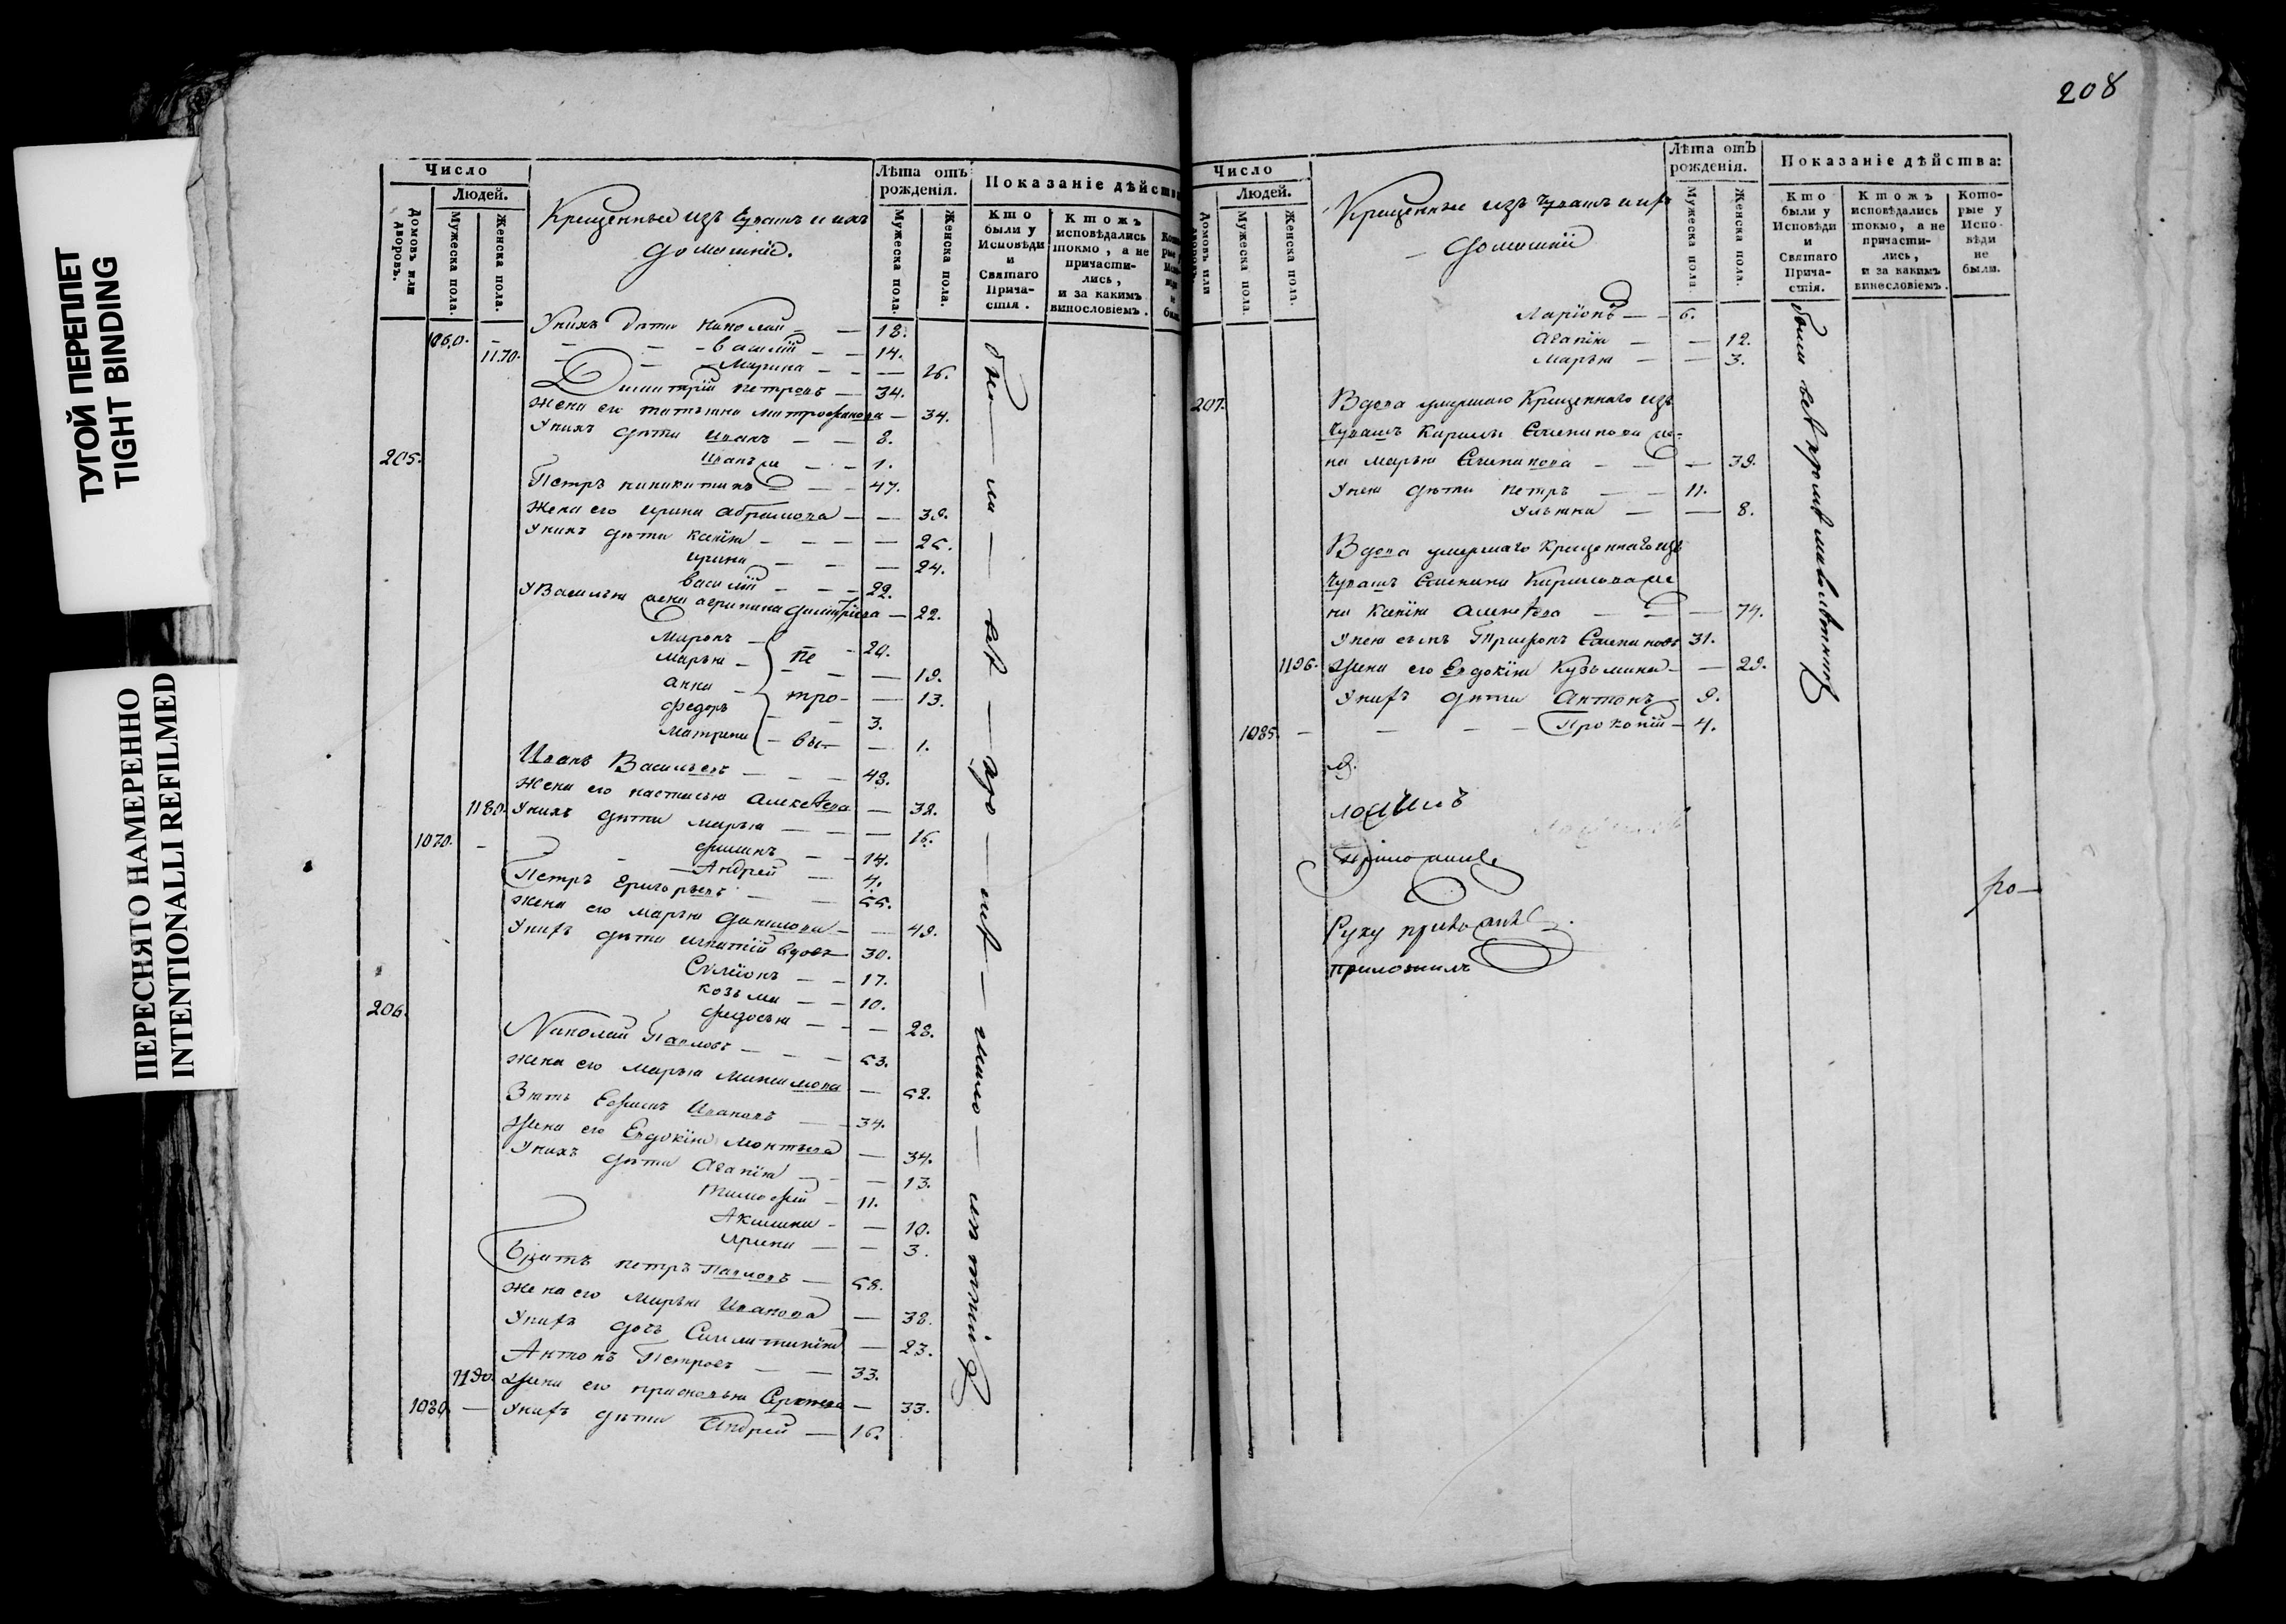 ТУГОЙ ПЕРЕПЛЕТ
TIGHT BINDING
ПЕРЕСНЯТО НАМЕРЕННО
INTENTIONALLI REFILMED
Число
Людей.
Домовъ или дворовъ.
Мужеска пола.
Женска пола.
Крещенные изъ Чувашъ и ихъ
домашніе.
Лѣта отъ рожденія.
Мужеска пола.
Женска пола.
Показаніе дѣйств
Кто были у Исповѣди и Святаго Прича-стія.
Ктожъ исповѣдались токмо, а не причасти-лись, и за какимъ винословіемъ.
1060. – У нихъ дѣти Николай – – 18.
1170. – – – Василій – – 14.
– – Марина – – — 26.
Димитрій Петровъ — 34.
Жена его Татьяна Митрофанова — 34.
У нихъ дѣти Иванъ – — 8.
205. Иванъ – – 1.
Петръ – – 47.
Жена его Ирина Абрамова — — 39.
У нихъ дѣти Ксенія – – — — 25.
Ирина – – — 24.
Василій – – – 22.
У Василья жена Агрипина Димитріева — 22.
Миронъ – 20.
Марья – — 19.
Анна – — 13.
Федоръ – – 3.
Матрена – — 1.
Пе – тро – вы –
Иванъ Васильевъ – – — 48.
Жена его Настасья Алексѣева — 38.
1180. У нихъ дѣти Марья – – — — 16.
1070. – Филипъ – – 14.
– Андрей — 4.
Петръ Григорьевъ – — 55.
Жена его Марья Данилова – — 49.
У нихъ дѣти Игнатій вдовъ 30.
Симіонъ – – 17.
Козьма – – 10.
206. Федосья – – — 28.
Николай Павловъ – – — 53.
Жена его Марья — 52.
Зять Ефимъ Ивановъ — 34.
Жена его Евдокія — 34.
У нихъ дѣти Агапія – — 13.
Тимофей – 11.
Акилина – — 10.
Ирина — — 3.
Братъ Петръ Павловъ — 58.
Жена его Марья Иванова — 38.
У нихъ дочь — 23.
Антонъ Петровъ – — 33.
1190. Жена его Прасковья Сергѣева — 33.
1080. — У нихъ дѣти Андрей — 16.
бы — ли — всѣ — про
208
Число
Людей.
Домовъ или дворовъ.
Мужеска пола.
Женска пола.
Крещенные изъ Чувашъ и ихъ
– домашніе
Лѣта отъ рожденія.
Мужеска пола.
Женска пола.
Показаніе дѣйства:
Кто были у Исповѣди и Святаго Прича-стія.
Ктожъ исповѣдались токмо, а не причасти-лись, и за какимъ винословіемъ.
Кото-рые у Испо-вѣди не были.
Ларіонъ — – 6.
Агапія – — 12.
Марья – — 3.
207. Вдова умершаго Крещеннаго изъ
Чувашъ Кирилы Семенова же-
на Марья Семенова – — — 39.
У нея дѣти Петръ — – 11.
Ульяна — — 8.
Вдова умершаго Крещеннаго изъ
Чувашъ Семена Кирилова же
на Ксенія Алексѣева — — 74.
У нея сынъ Трифонъ Семеновъ 31.
1196. Жена его Евдокія Кузьмина – — 29.
У нихъ дѣти Антонъ – 9.
1085. – – – – Прокопій – 4.
были всѣ
Руку
приложилъ